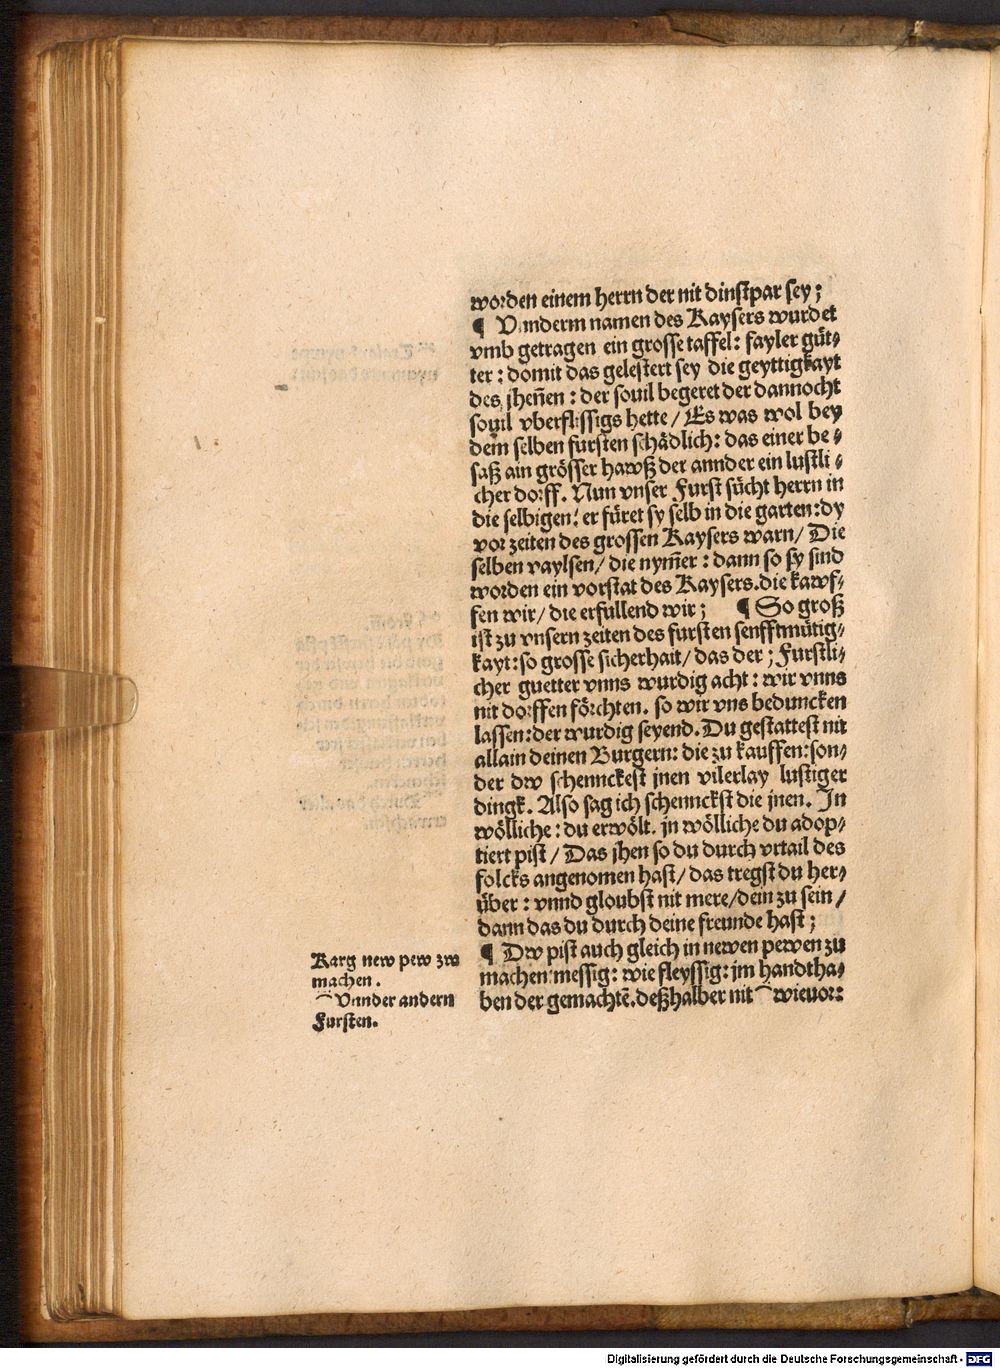 worden einem herrn der nit dinstpar sey;
¶ Vnnderm namen des Kaysers wurdet
vmb getragen ein grosse taffel: fayler güt⸗
ter: domit das gelestert sey die geyttigkayt
des jheñen: der souil begeret der dannocht
souil vberflissigs hette / Es was wol bey
dem selben fursten schädlich: das einer be⸗
saß ain grösser hawß der annder ein lustli⸗
cher dorff. Nun vnser Furst sücht herrn in
die selbigen: er füret sy selb in die garten: dy
vor zeiten des grossen Kaysers warn / Die
selben vaylsen / die nym̃er: dann so sy sind
worden ein vorstat des Kaysers. die kawf⸗
fen wir / die erfullend wir; ¶ So groß
ist zu vnsern zeiten des fursten senfftmütig⸗
kayt: so grosse sicherhait / das der; Furstli⸗
cher guetter vnns wurdig acht: wir vnns
nit dorffen förchten. so wir vns beduncken
lassen: der wurdig seyend. Du gestattest nit
allain deinen Burgern: die zu kauffen: son⸗
der dw schennckest jnen vilerlay lustiger
dingk. Also sag ich schennckst die jnen. In
wölliche: du erwölt. jn wölliche du adop⸗
tiert pist / Das jhen so du durch vrtail des
folcks angenomen hast / das tregst du her⸗
über: vnnd gloubst nit mere / dein zu sein /
dann das du durch deine freunde hast;
¶ Dw pist auch gleich in newen pewen zu
machen messig: wie fleyssig: jm handtha⸗
ben der gemachtẽ. deßhalber nit ⁀ wieuor:
Karg new pew zw
machen.
⁀ Vnnder andern
Fursten.
Digitalisierung gefördert durch die Deutsche Forschungsgemeinschaft - DFG